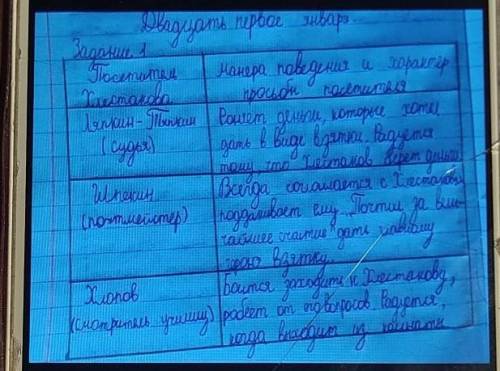 Двадцать первое января.
Задание 1
Посетители Хлестакова
манера поведения и характер просьбы посетителя
Ляпкин-Тяпкин (судья)
Роняет деньги, которые хотел
дать в виде взятки. Радуется
тому, что Хлестаков берет деньги
Шпекин (почтмейстер)
Всегда соглашается с Хлестаковым,
поддакивает ему. Почтил за вели-
чайшее счастье дать главному
герою взятку.
Хлопов (смотритель училищ)
Боится заходить к Хлестакову,
робеет от его вопросов. Радуется,
когда выходит из комнаты